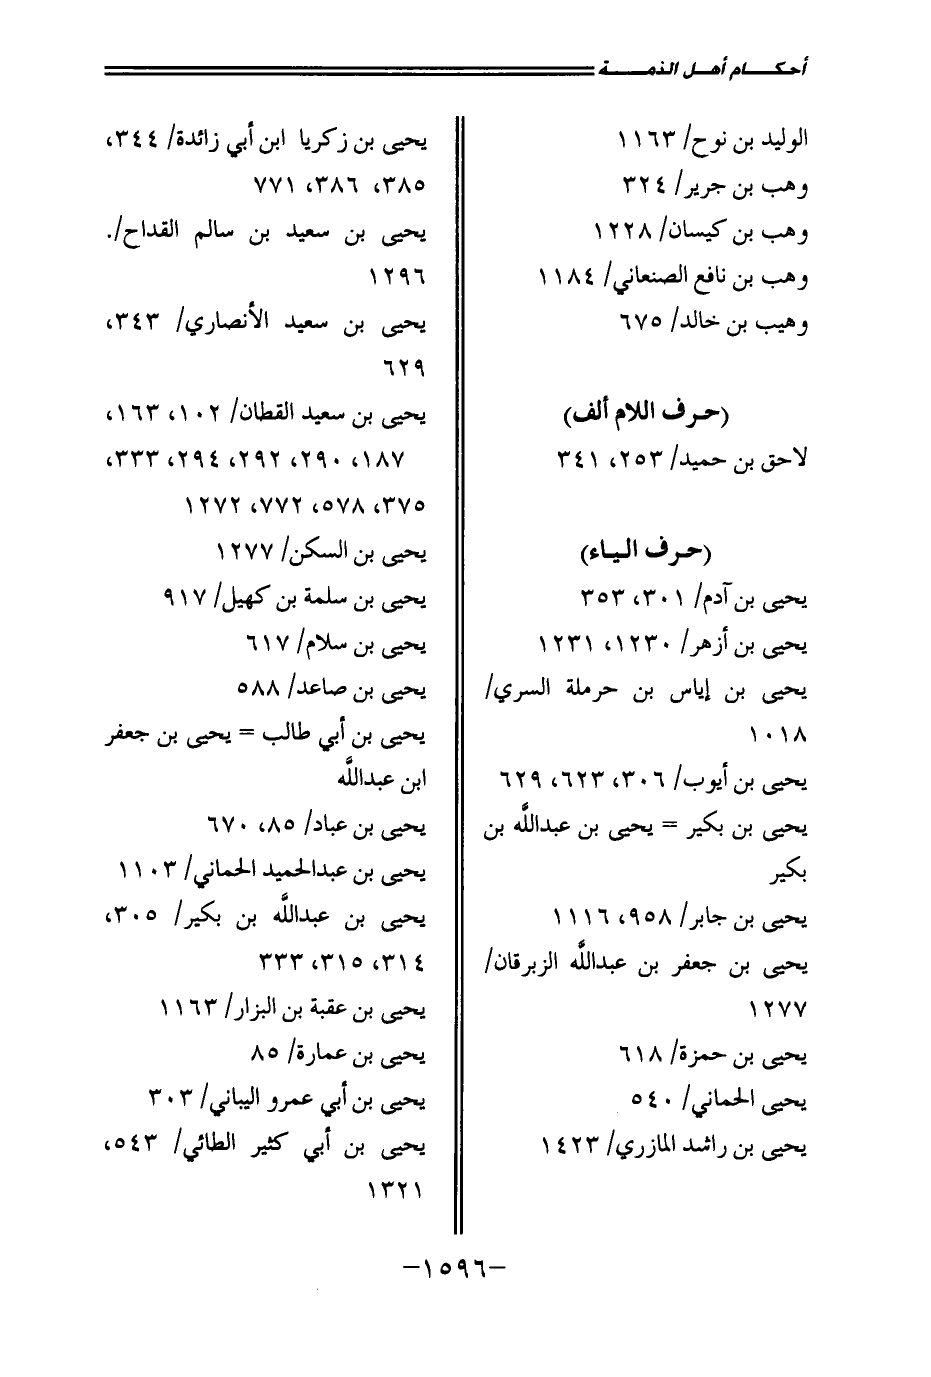 أحكـــام أهـل الذمـــة
الوليد بن نوح/ ١١٦٣
وهب بن جرير/ ٣٢٤
وهب بن كيسان/ ١٢٢٨
وهب بن نافع الصنعاني/ ١١٨٤
وهيب بن خالد/ ٦٧٥
(حـرف اللام ألف)
لاحق بن حميد/ ٢٥٣، ٣٤١
(حـرف الـيـاء)
يحيى بن آدم/ ٣٠١، ٣٥٣
يحيى بن أزهر/ ١٢٣٠، ١٢٣١
يحيى بن إياس بن حرملة السري/
١٠١٨
يحيى بن أيوب/ ٣٠٦، ٦٢٣، ٦٢٩
يحيى بن بكير = يحيى بن عبدالله بن
بكير
يحيى بن جابر/ ٩٥٨، ١١١٦
يحيى بن جعفر بن عبدالله الزبرقان/
١٢٧٧
يحيى بن حمزة/ ٦١٨
يحيى الحماني/ ٥٤٠
يحيى بن راشد المازري/ ١٤٢٣
يحيى بن زكريا ابن أبي زائدة/ ٣٤٤،
٣٨٥، ٣٨٦، ٧٧١
يحيى بن سعيد بن سالم القداح/.
١٢٩٦
يحيى بن سعيد الأنصاري/ ٣٤٣،
٦٢٩
يحيى بن سعيد القطان/ ١٠٢، ١٦٣،
١٨٧، ٢٩٠، ٢٩٢، ٢٩٤، ٣٣٣،
٣٧٥، ٥٧٨، ٧٧٢، ١٢٧٢
يحيى بن السكن/ ١٢٧٧
يحيى بن سلمة بن كهيل/ ٩١٧
يحيى بن سلام/ ٦١٧
يحيى بن صاعد/ ٥٨٨
يحيى بن أبي طالب = يحيى بن جعفر
ابن عبدالله
يحيى بن عباد/ ٨٥، ٦٧٠
يحيى بن عبدالحميد الحماني/ ١١٠٣
يحيى بن عبدالله بن بكير/ ٣٠٥،
٣١٤، ٣١٥، ٣٣٣
يحيى بن عقبة بن البزار/ ١١٦٣
يحيى بن عمارة/ ٨٥
يحيى بن أبي عمرو اليباني/ ٣٠٣
يحيى بن أبي كثير الطائي/ ٥٤٣،
١٣٢١
-١٥٩٦-